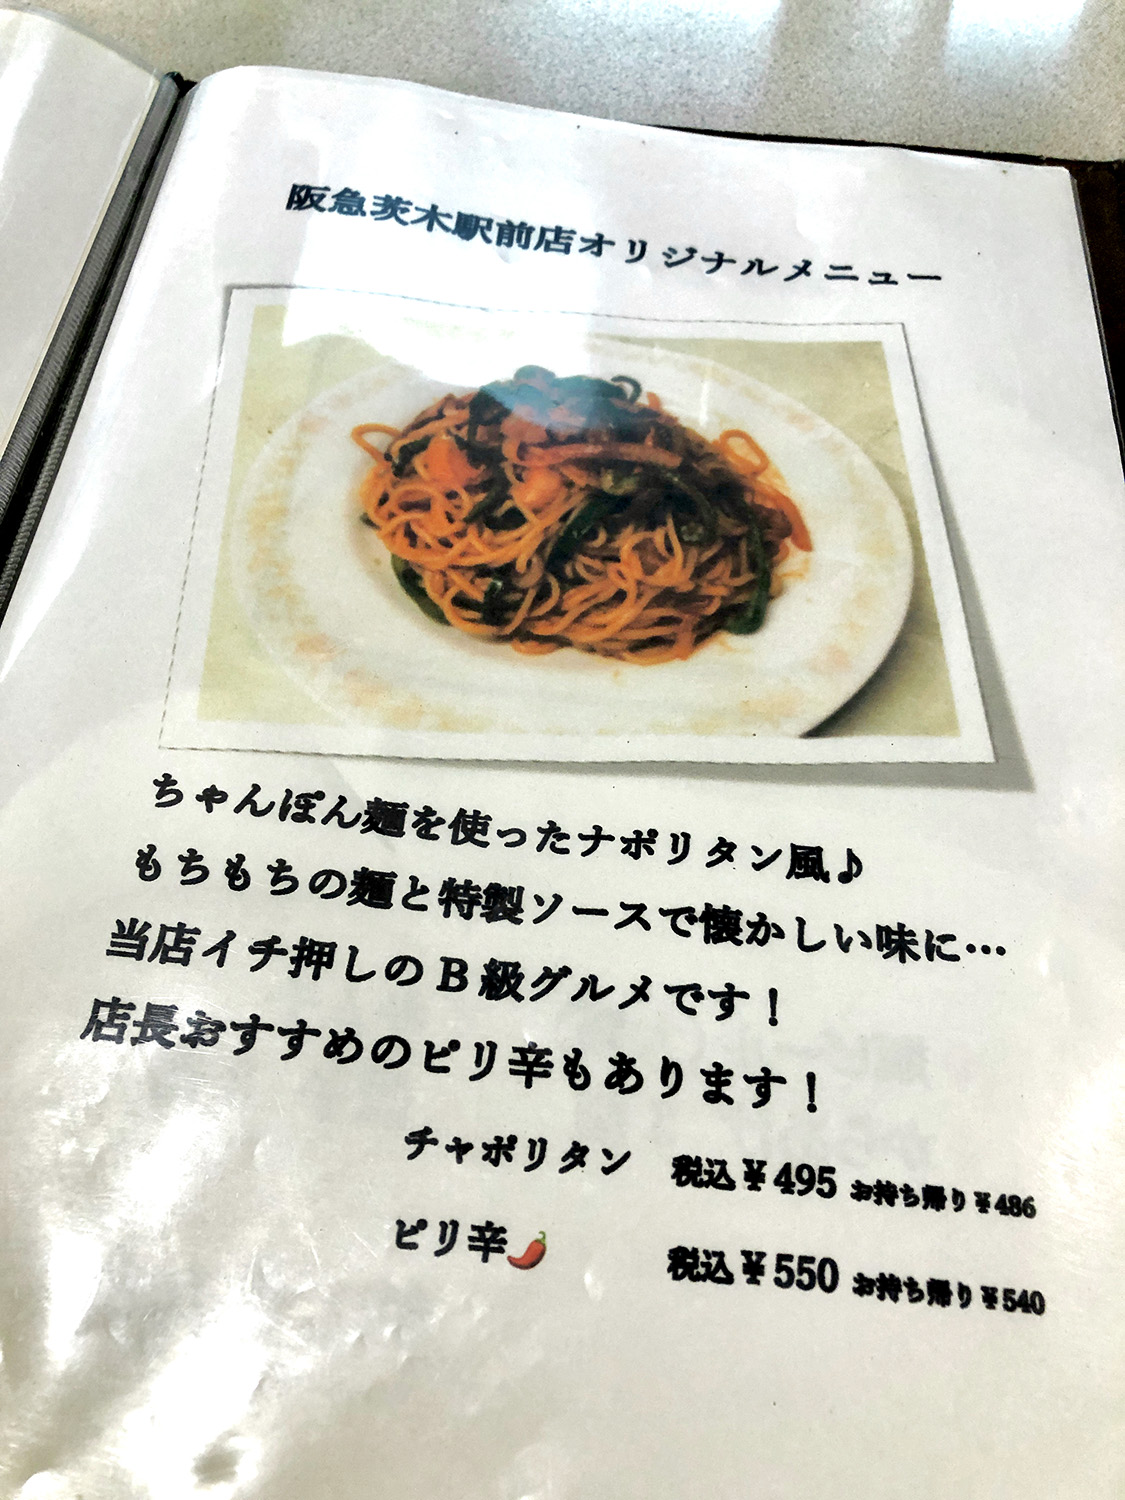 阪急茨木駅前店オリジナルメニュー
ちゃんぽん麺を使ったナポリタン風♪
もちもちの麺と特製ソースで懐かしい味に…
当店イチ押しのB級グルメです!
店長おすすめのピリ辛もあります!
チャポリタン 税込¥495 お持ち帰り¥486
ピリ辛🌶 税込¥550 お持ち帰り¥540